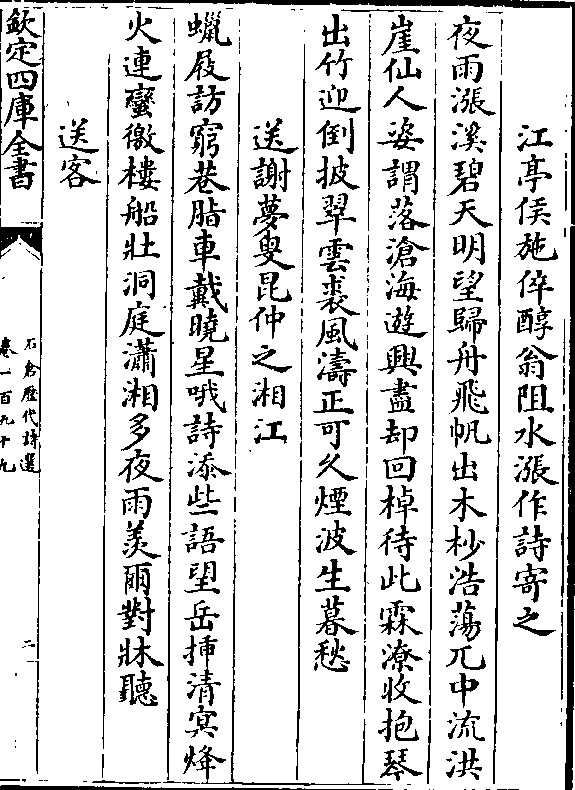 江亭俟施倅醇翁阻水漲作詩寄之
夜雨漲溪碧天明望歸舟飛帆出木杪浩蕩兀中流洪
崖仙人姿謂落滄海遊興盡却回棹待此霖潦收抱琴
出竹迎倒披翠雲裘風濤正可久煙波生暮愁
送謝夢叟昆仲之湘江
蠟屐訪窮巷脂車戴曉星哦詩添些語望岳揷清冥烽
火連蠻徼樓船壯洞庭瀟湘多夜雨羡爾對牀聽
送客
欽定四庫全書
石倉歷代詩選
卷一百九十九
二